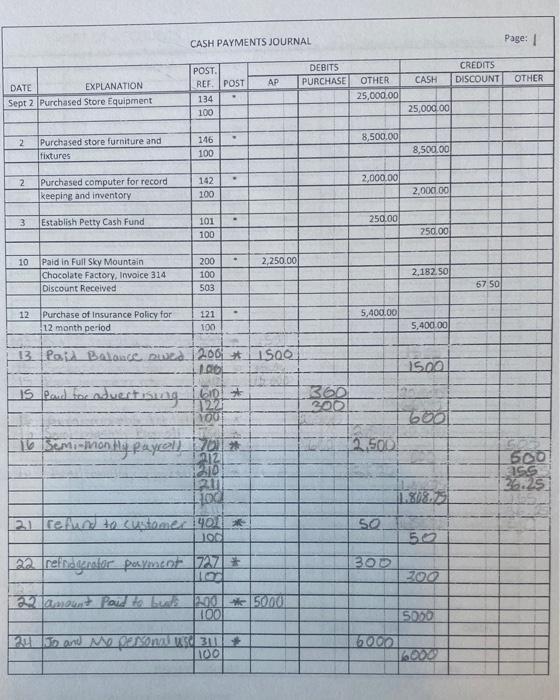 CASH PAYMENTS JOURNAL Page: 1
DEBITS CREDITS
DATE EXPLANATION POST. REF. POST AP PURCHASE OTHER CASH DISCOUNT OTHER
Sept 2 Purchased Store Equipment 134 * 25,000.00
100 25,000.00
2 Purchased store furniture and 146 * 8,500.00
fixtures 100 8,500.00
2 Purchased computer for record 142 * 2,000.00
keeping and inventory 100 2,000.00
3 Establish Petty Cash Fund 101 * 250.00
100 250.00
10 Paid in Full Sky Mountain 200 * 2,250.00
Chocolate Factory, Invoice 314 100 2,182.50
Discount Received 503 67.50
12 Purchase of Insurance Policy for 121 * 5,400.00
12 month period 100 5,400.00
13 Paid Balance owed 200 * 1500
100 1500
15 Paid for advertising 610 * 300
122 300
100 600
16 Semi-monthly payroll 701 * 2,500
212 500
210 155
211 36.25
100 1,808.75
21 refund to customer 402 * 50
100 50
22 refridgerator payment 727 * 300
100 300
22 amount Paid to 200 * 5000
100 5000
24 Jo and Mo personal use 311 * 6000
100 6000